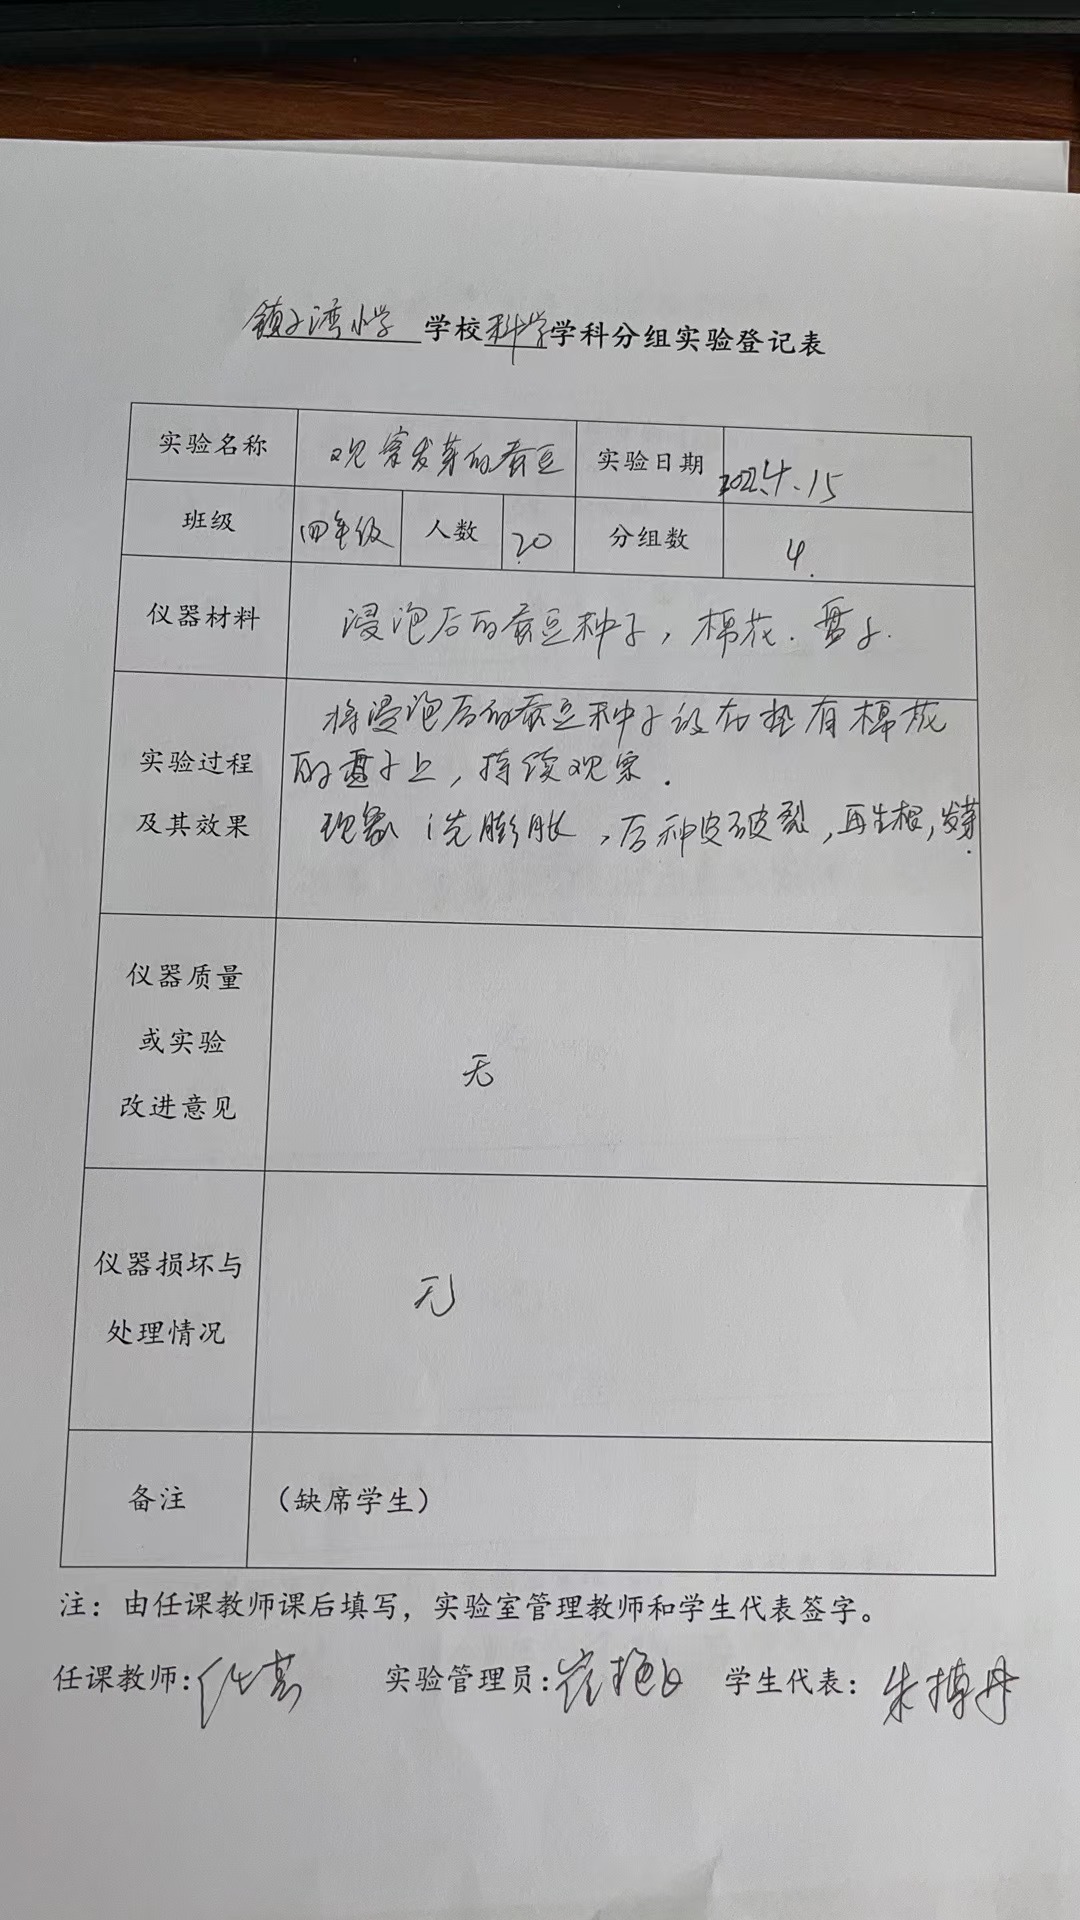 镇子湾小学 学校科学学科分组实验登记表
实验名称 观察发芽的蚕豆 实验日期 4.15
班级 四年级 人数 20 分组数 4.
仪器材料 浸泡后的蚕豆种子，棉花.盘子.
实验过程
及其效果
将浸泡后的蚕豆种子放在垫有棉花
的盘子上，持续观察.
现象：先膨胀，后种皮破裂，再生根，发芽.
仪器质量
或实验
改进意见
无
仪器损坏与
处理情况
无
备注 （缺席学生）
注：由任课教师课后填写，实验室管理教师和学生代表签字。
任课教师: 实验管理员: 学生代表：朱